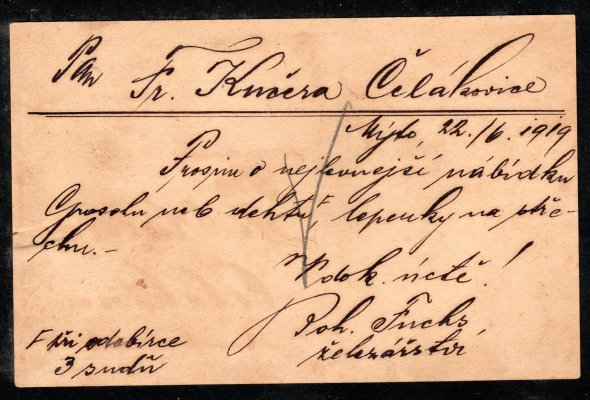 Pan
Fr. Kučera Čelákovice
Mýto, 22./6. 1919
Prosím o nejlevnejší nabídku
neb dehtu, lepenky na stře-
chu.-
V dok. úctě!
Boh. Fuchs,
železářství
při odbírce
3 sudů